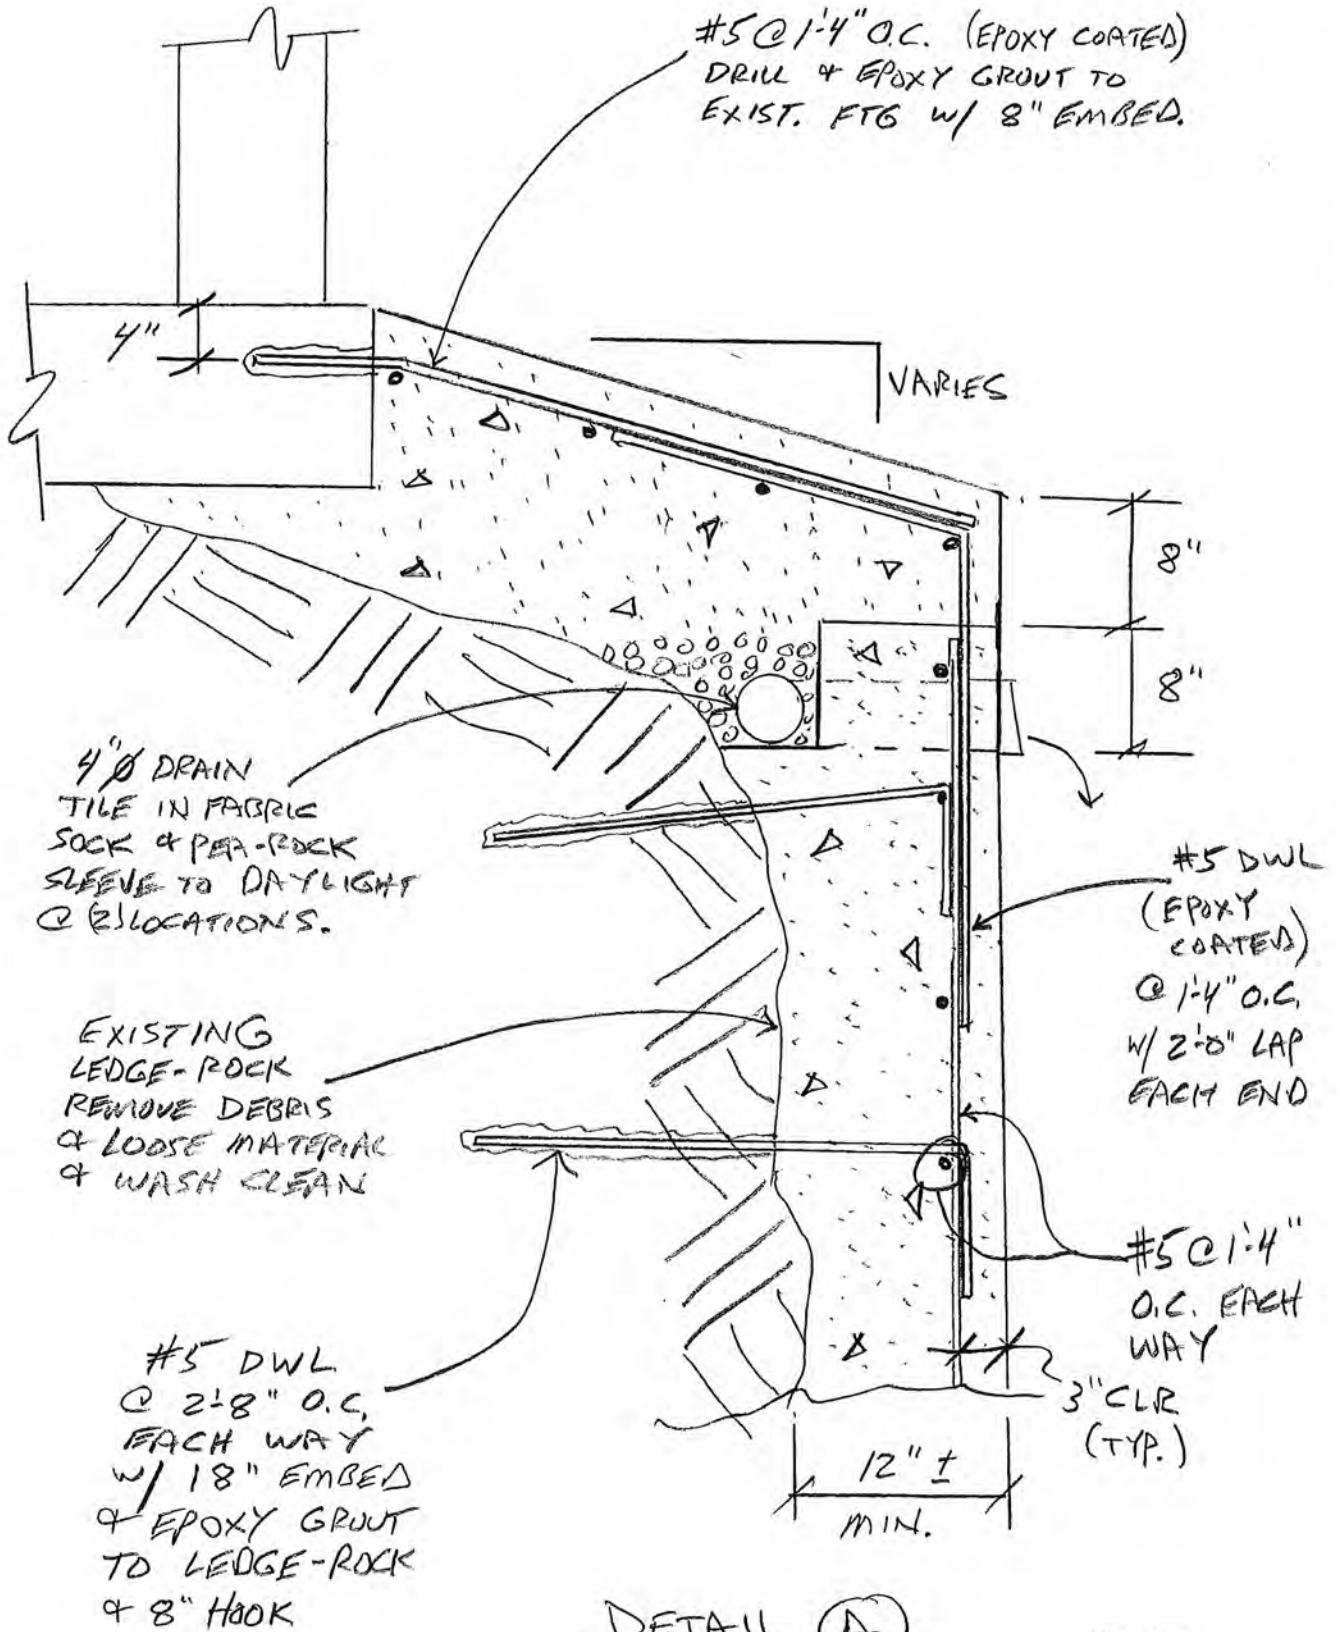 #5 @ 1'-4" O.C. (EPOXY COATED)
DRILL & EPOXY GROUT TO
EXIST. FTG W/ 8" EMBED.
4"
VARIES
8"
8"
4"Ø DRAIN
TILE IN FABRIC
SOCK & PEA-ROCK
SLEEVE TO DAYLIGHT
@ (2) LOCATIONS.
#5 DWL
(EPOXY
COATED)
@ 1'-4" O.C.
W/ 2'-0" LAP
EACH END
EXISTING
LEDGE-ROCK
REMOVE DEBRIS
& LOOSE MATERIAL
& WASH CLEAN
#5 @ 1'-4"
O.C. EACH
WAY
3" CLR
(TYP.)
12" ±
MIN.
#5 DWL
@ 2'-8" O.C.
EACH WAY
W/ 18" EMBED
& EPOXY GROUT
TO LEDGE-ROCK
& 8" HOOK
DETAIL A